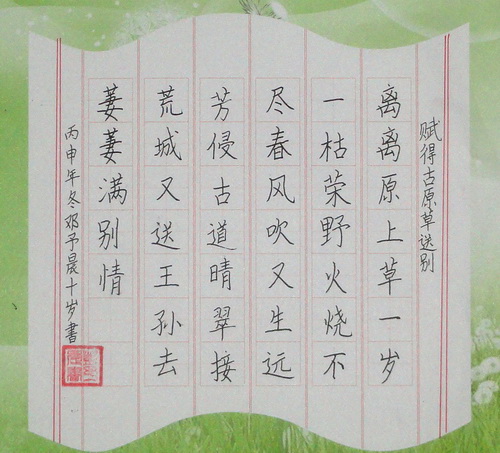 赋得古原草送别
离离原上草一岁
一枯荣野火烧不
尽春风吹又生远
芳侵古道晴翠接
荒城又送王孙去
萋萋满别情
丙申年冬邓予晨十岁书